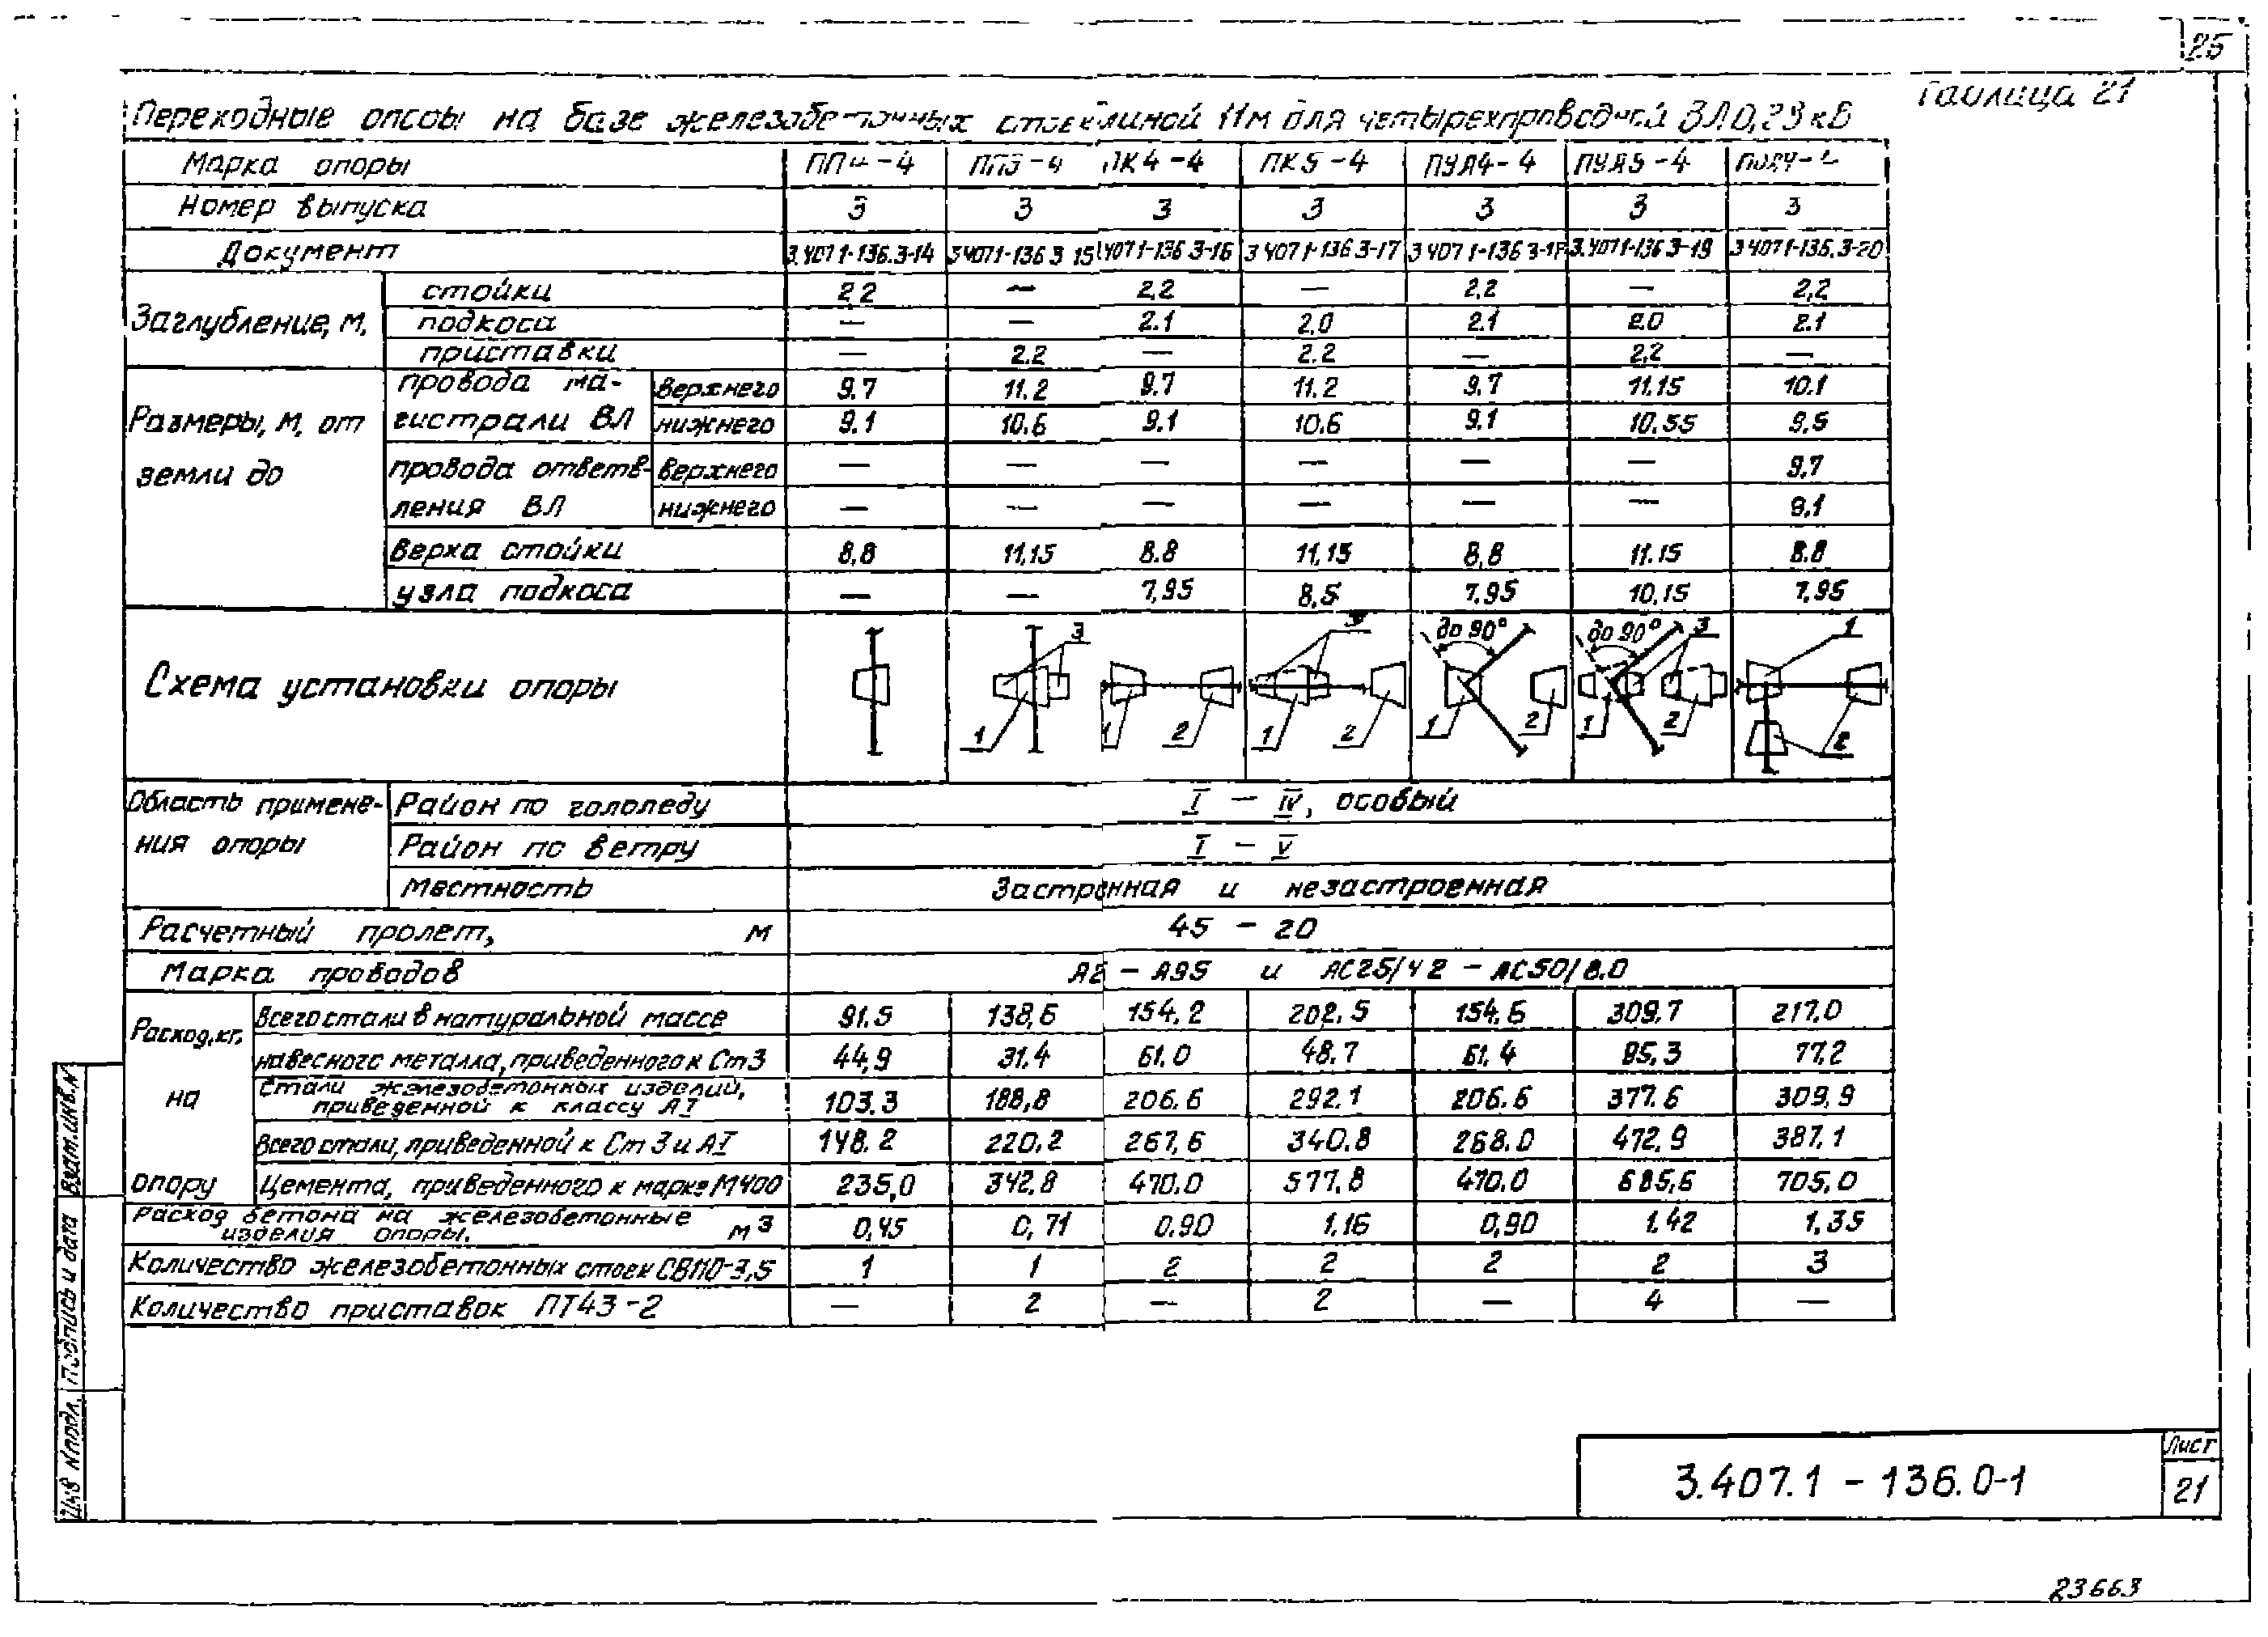 25
Таблица 21
Переходные опоры на базе железобетонных стоек длиной 11м для четырехпроводной ВЛ 0,38 кВ
Марка опоры ПП4-4 ПП5-4 ПК4-4 ПК5-4 ПУА4-4 ПУА5-4
Номер выпуска 3 3 3 3 3 3 3
Документ 3.407.1-136.3-14 3.407.1-136.3-15 3.407.1-136.3-16 3.407.1-136.3-17 3.407.1-136.3-18 3.407.1-136.3-19 3.407.1-136.3-20
Заглубление, м,
стойки 2,2 — 2,2 — 2,2 — 2,2
подкоса — — 2.1 2,0 2.1 2.0 2.1
приставки — 2.2 — 2.2 — 2,2 —
Размеры, м, от земли до
провода магистрали ВЛ верхнего 9.7 11.2 9.7 11.2 9.7 11.15 10.1
нижнего 9.1 10.6 9.1 10.6 9.1 10.55 9,5
провода ответвления ВЛ верхнего — — — — — — 9,7
нижнего — — — — — — 9,1
верха стойки 8,8 11,15 8.8 11,15 8,8 11.15 8.8
узла подкоса — — 7,95 8,5 7,95 10,15 7,95
Схема установки опоры
3 3 до 90° до 90° 3 1
1 1 2 1 2 1 2 1 2 2
Область применения опоры
Район по гололеду I – IV, особый
Район по ветру I – V
Местность Застроенная и незастроенная
Расчетный пролет, м 45 – 20
Марка проводов – А95 и АС25/4.2 – АС50/8.0
Расход, кг, на опору
Всего стали в натуральной массе 91.5 138,6 154.2 202,5 154.6 309.7 217.0
навесного металла, приведенного к Ст3 44,9 31.4 61.0 48.7 61.4 95.3 77.2
Стали железобетонных изделий, приведенной к классу АI 103.3 188,8 206.6 292.1 206.6 377.6 309.9
Всего стали, приведенной к Ст 3 и АI 148.2 220.2 267,6 340.8 268.0 472.9 387.1
Цемента, приведенного к марке М400 235,0 342,8 470.0 577.8 470.0 685,6 705,0
Расход бетона на железобетонные изделия опоры. м3 0,45 0,71 0.90 1.16 0,90 1.42 1,35
Количество железобетонных стоек СВ110-3,5 1 1 2 2 2 2 3
Количество приставок ПТ43-2 — 2 — 2 — 4 —
Взам.инв.№
Подпись и дата
Инв №подл.
3.407.1 - 136.0-1
Лист
21
23663